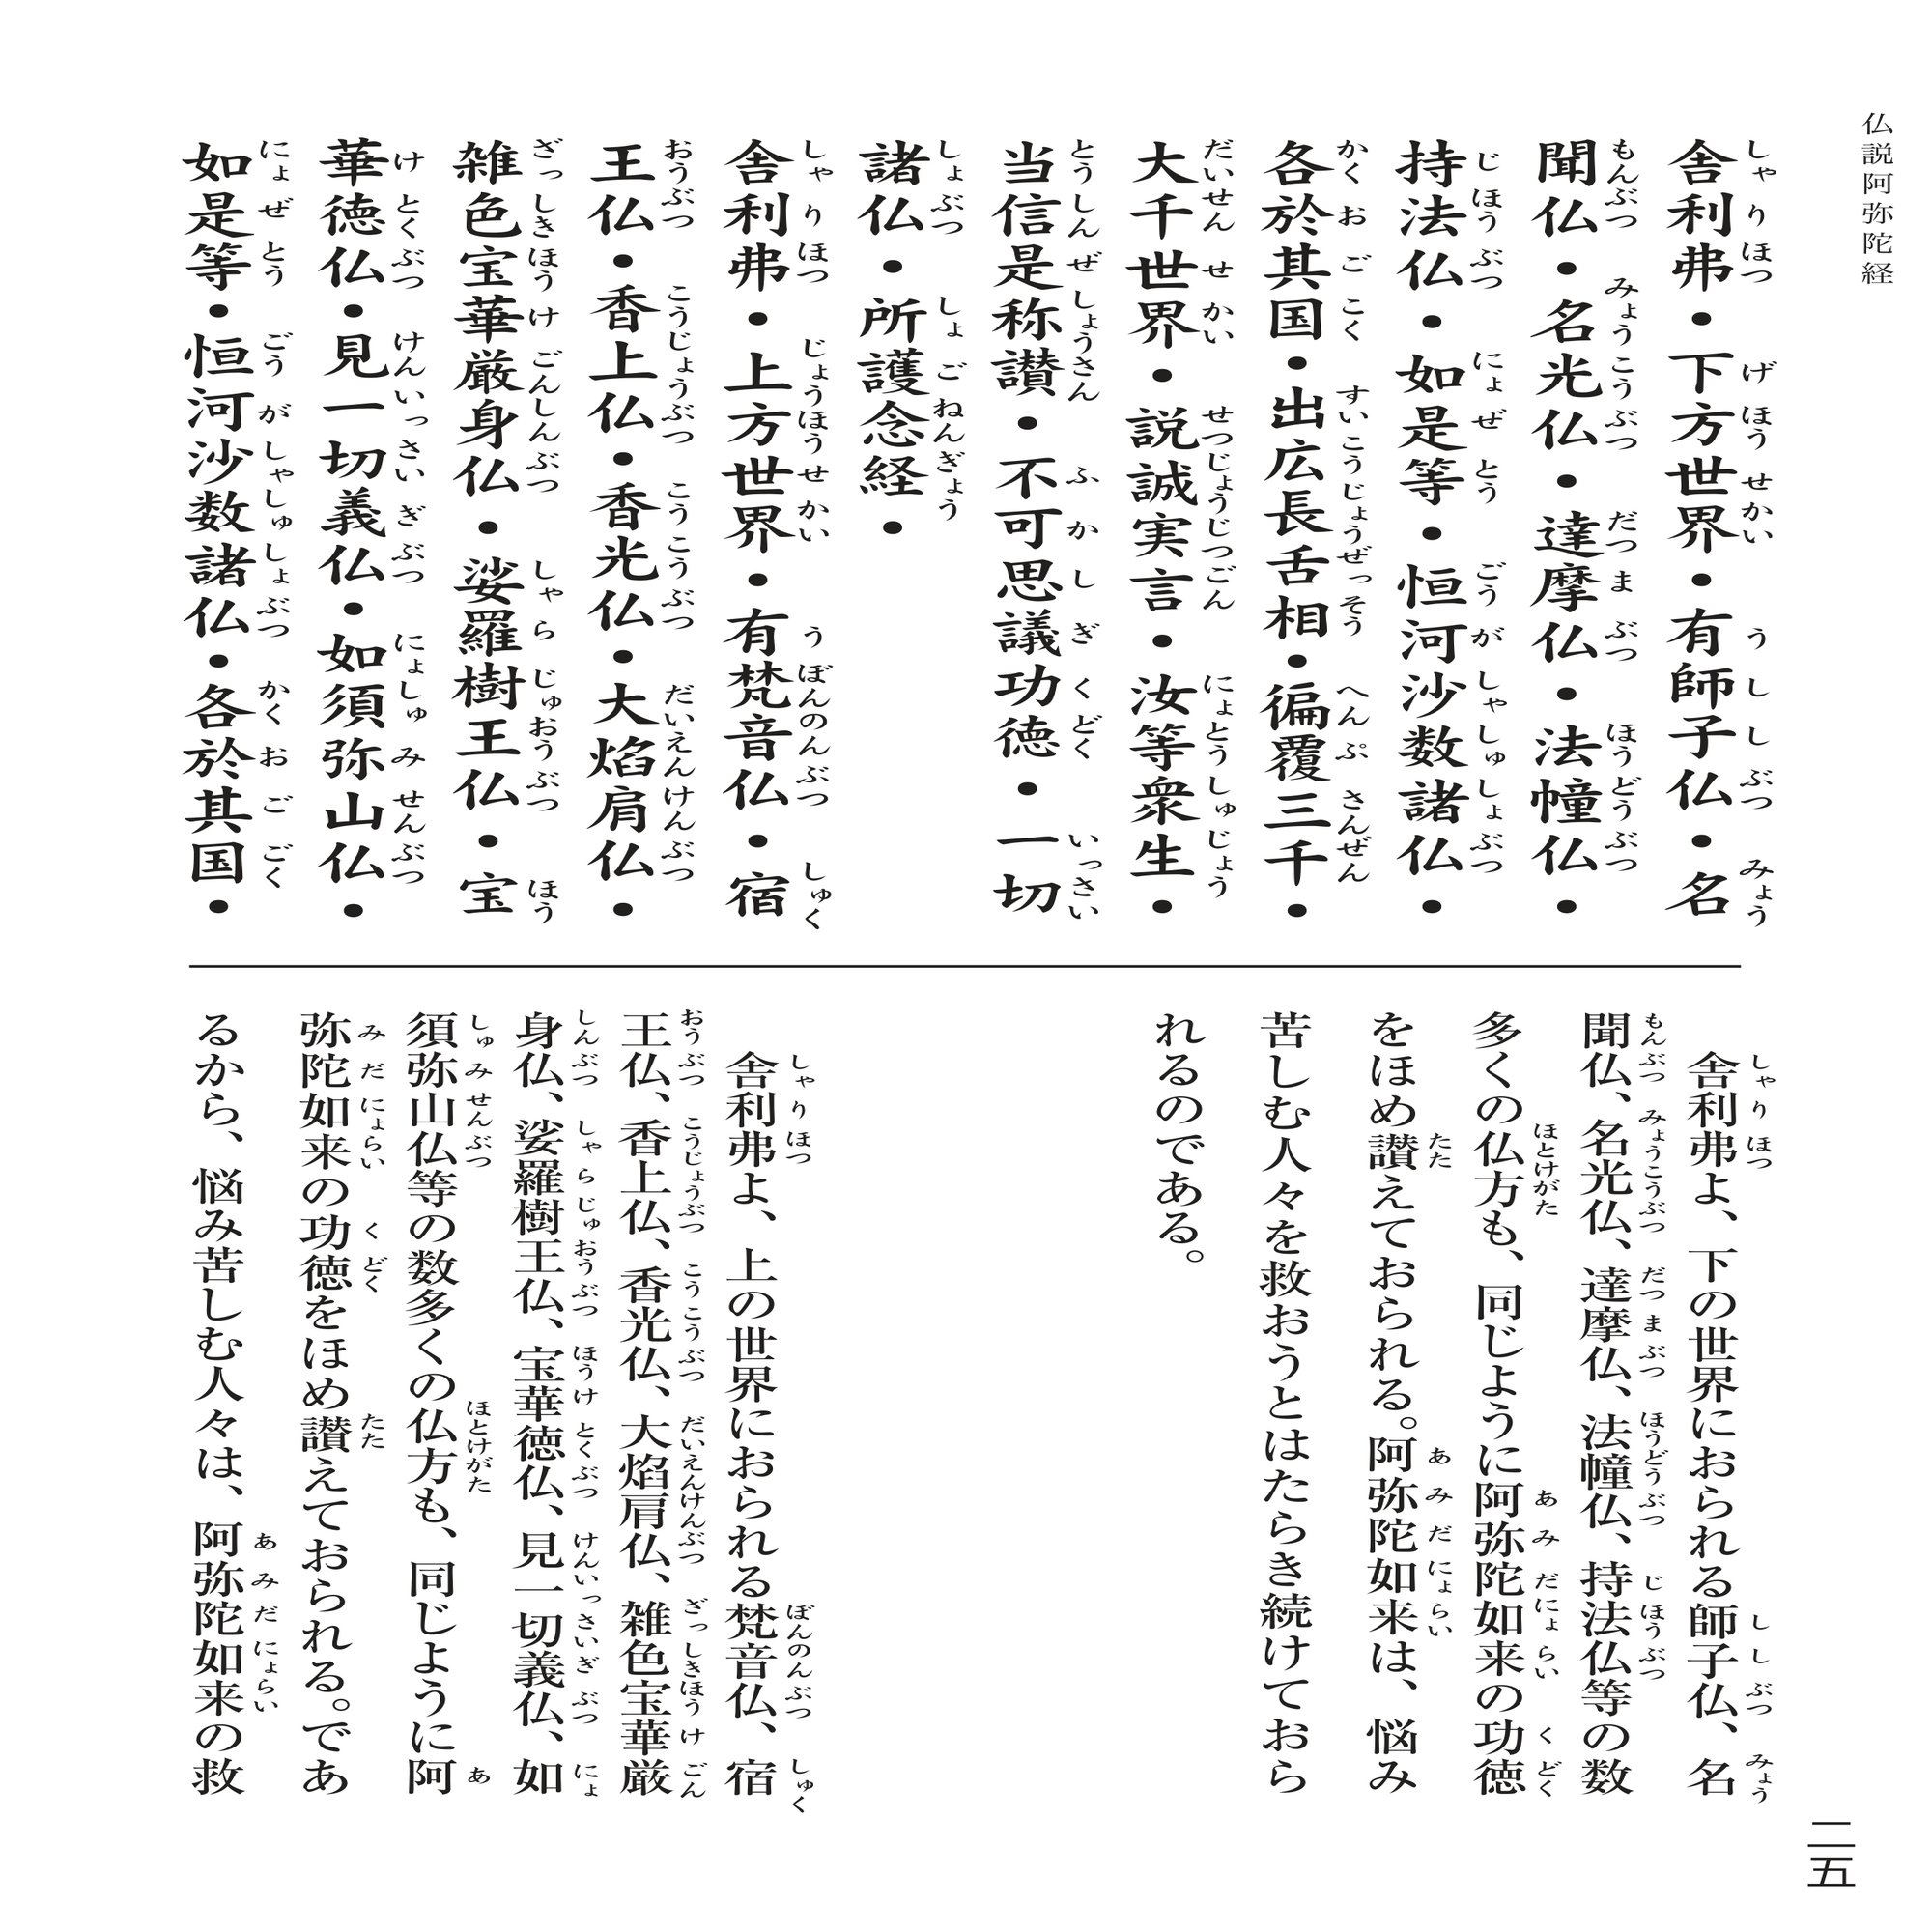 仏説阿弥陀経
舎利弗・下方世界・有師子仏・名
聞仏・名光仏・達摩仏・法幢仏・
持法仏・如是等・恒河沙数諸仏・
各於其国・出広長舌相・徧覆三千・
大千世界・説誠実言・汝等衆生・
当信是称讃・不可思議功徳・一切
諸仏・所護念経・
舎利弗・上方世界・有梵音仏・宿
王仏・香上仏・香光仏・大焔肩仏・
雑色宝華厳身仏・娑羅樹王仏・宝
華徳仏・見一切義仏・如須弥山仏・
如是等・恒河沙数諸仏・各於其国・
舎利弗よ、下の世界におられる師子仏、名
聞仏、名光仏、達摩仏、法幢仏、持法仏等の数
多くの仏方も、同じように阿弥陀如来の功徳
をほめ讃えておられる。阿弥陀如来は、悩み
苦しむ人々を救おうとはたらき続けておら
れるのである。
舎利弗よ、上の世界におられる梵音仏、宿
王仏、香上仏、香光仏、大焔肩仏、雑色宝華厳
身仏、娑羅樹王仏、宝華徳仏、見一切義仏、如
須弥山仏等の数多くの仏方も、同じように阿
弥陀如来の功徳をほめ讃えておられる。であ
るから、悩み苦しむ人々は、阿弥陀如来の救
二五